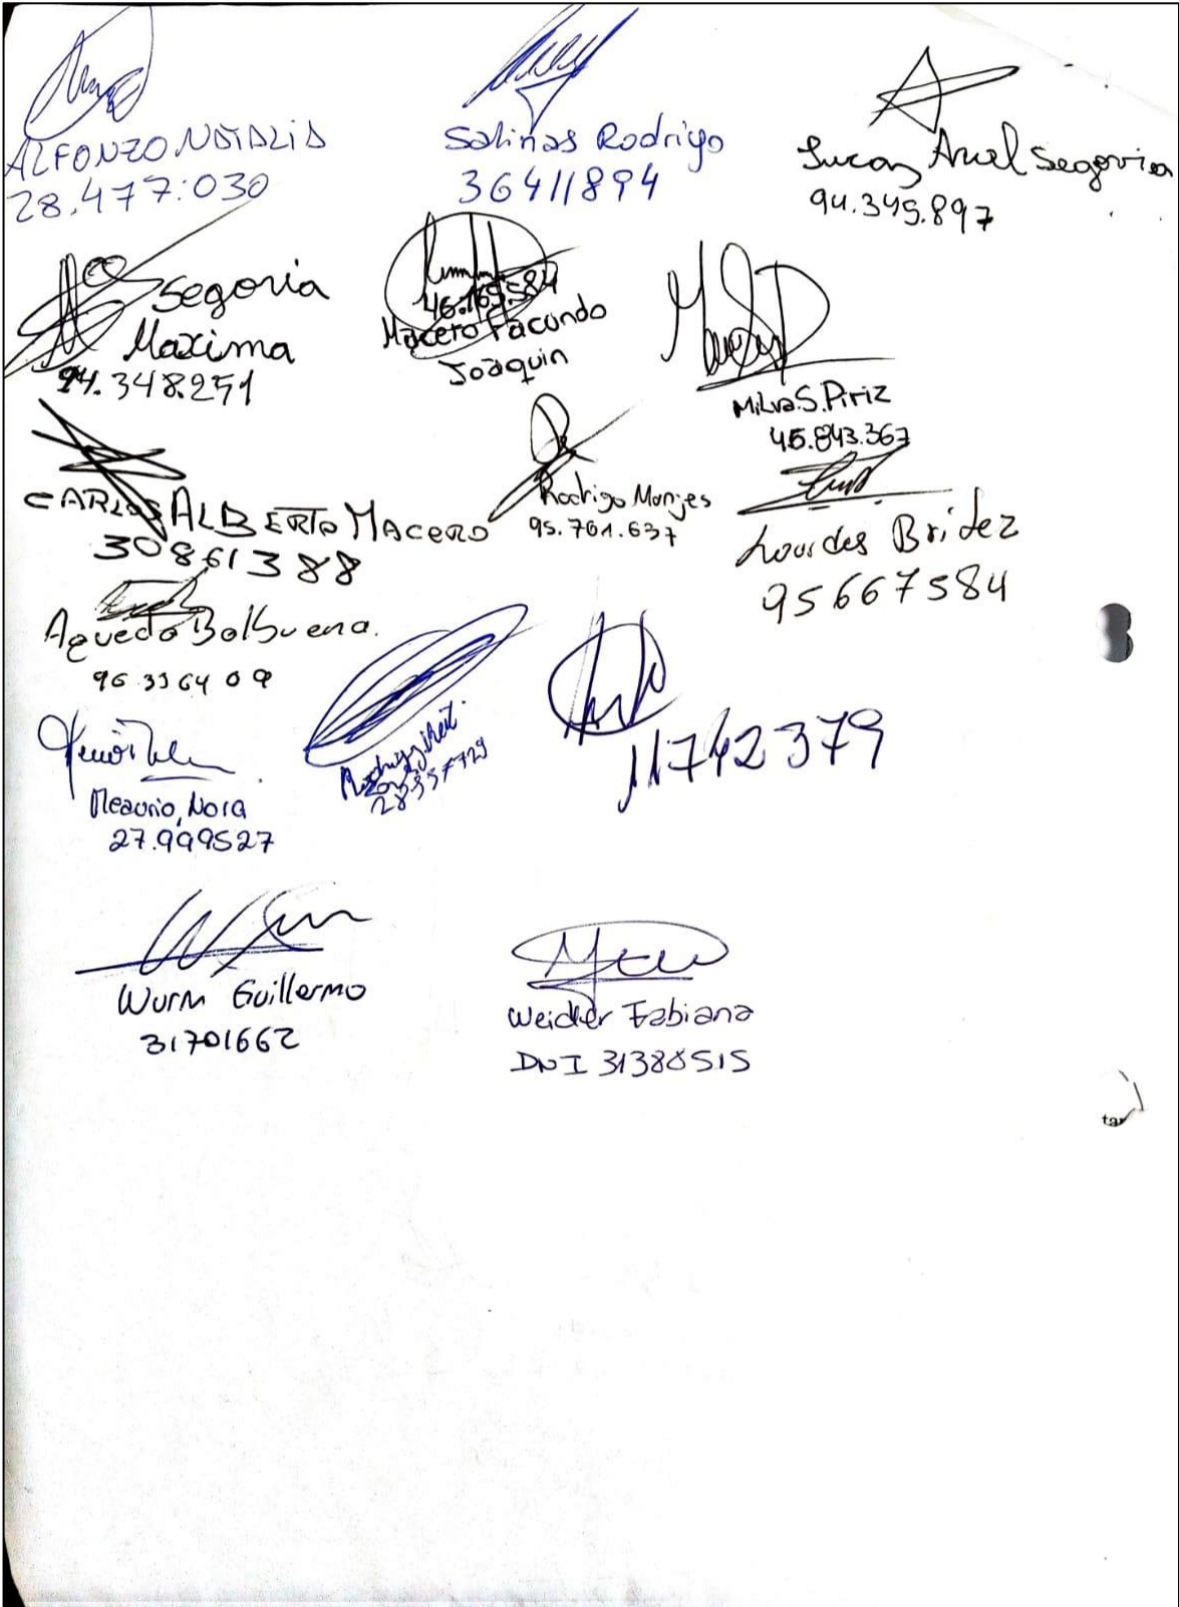 ALFONZO NATALIA
28.477.030
Salinas Rodrigo
36411894
Lucas Ariel Segovia
94.345.897
Segovia
Maxima
94.348.251
46.169.584
Macero Facundo
Joaquin
Milva S. Piriz
45.843.367
CARLOS ALBERTO MACERO
30861388
Rodrigo Monjes
95.761.637
Lourdes Britez
95667584
Agueda Balbuena.
96336409
Meaurio, Nora
27.999527
11742379
Wurm Guillermo
31701662
Weidler Fabiana
DNI 31388515